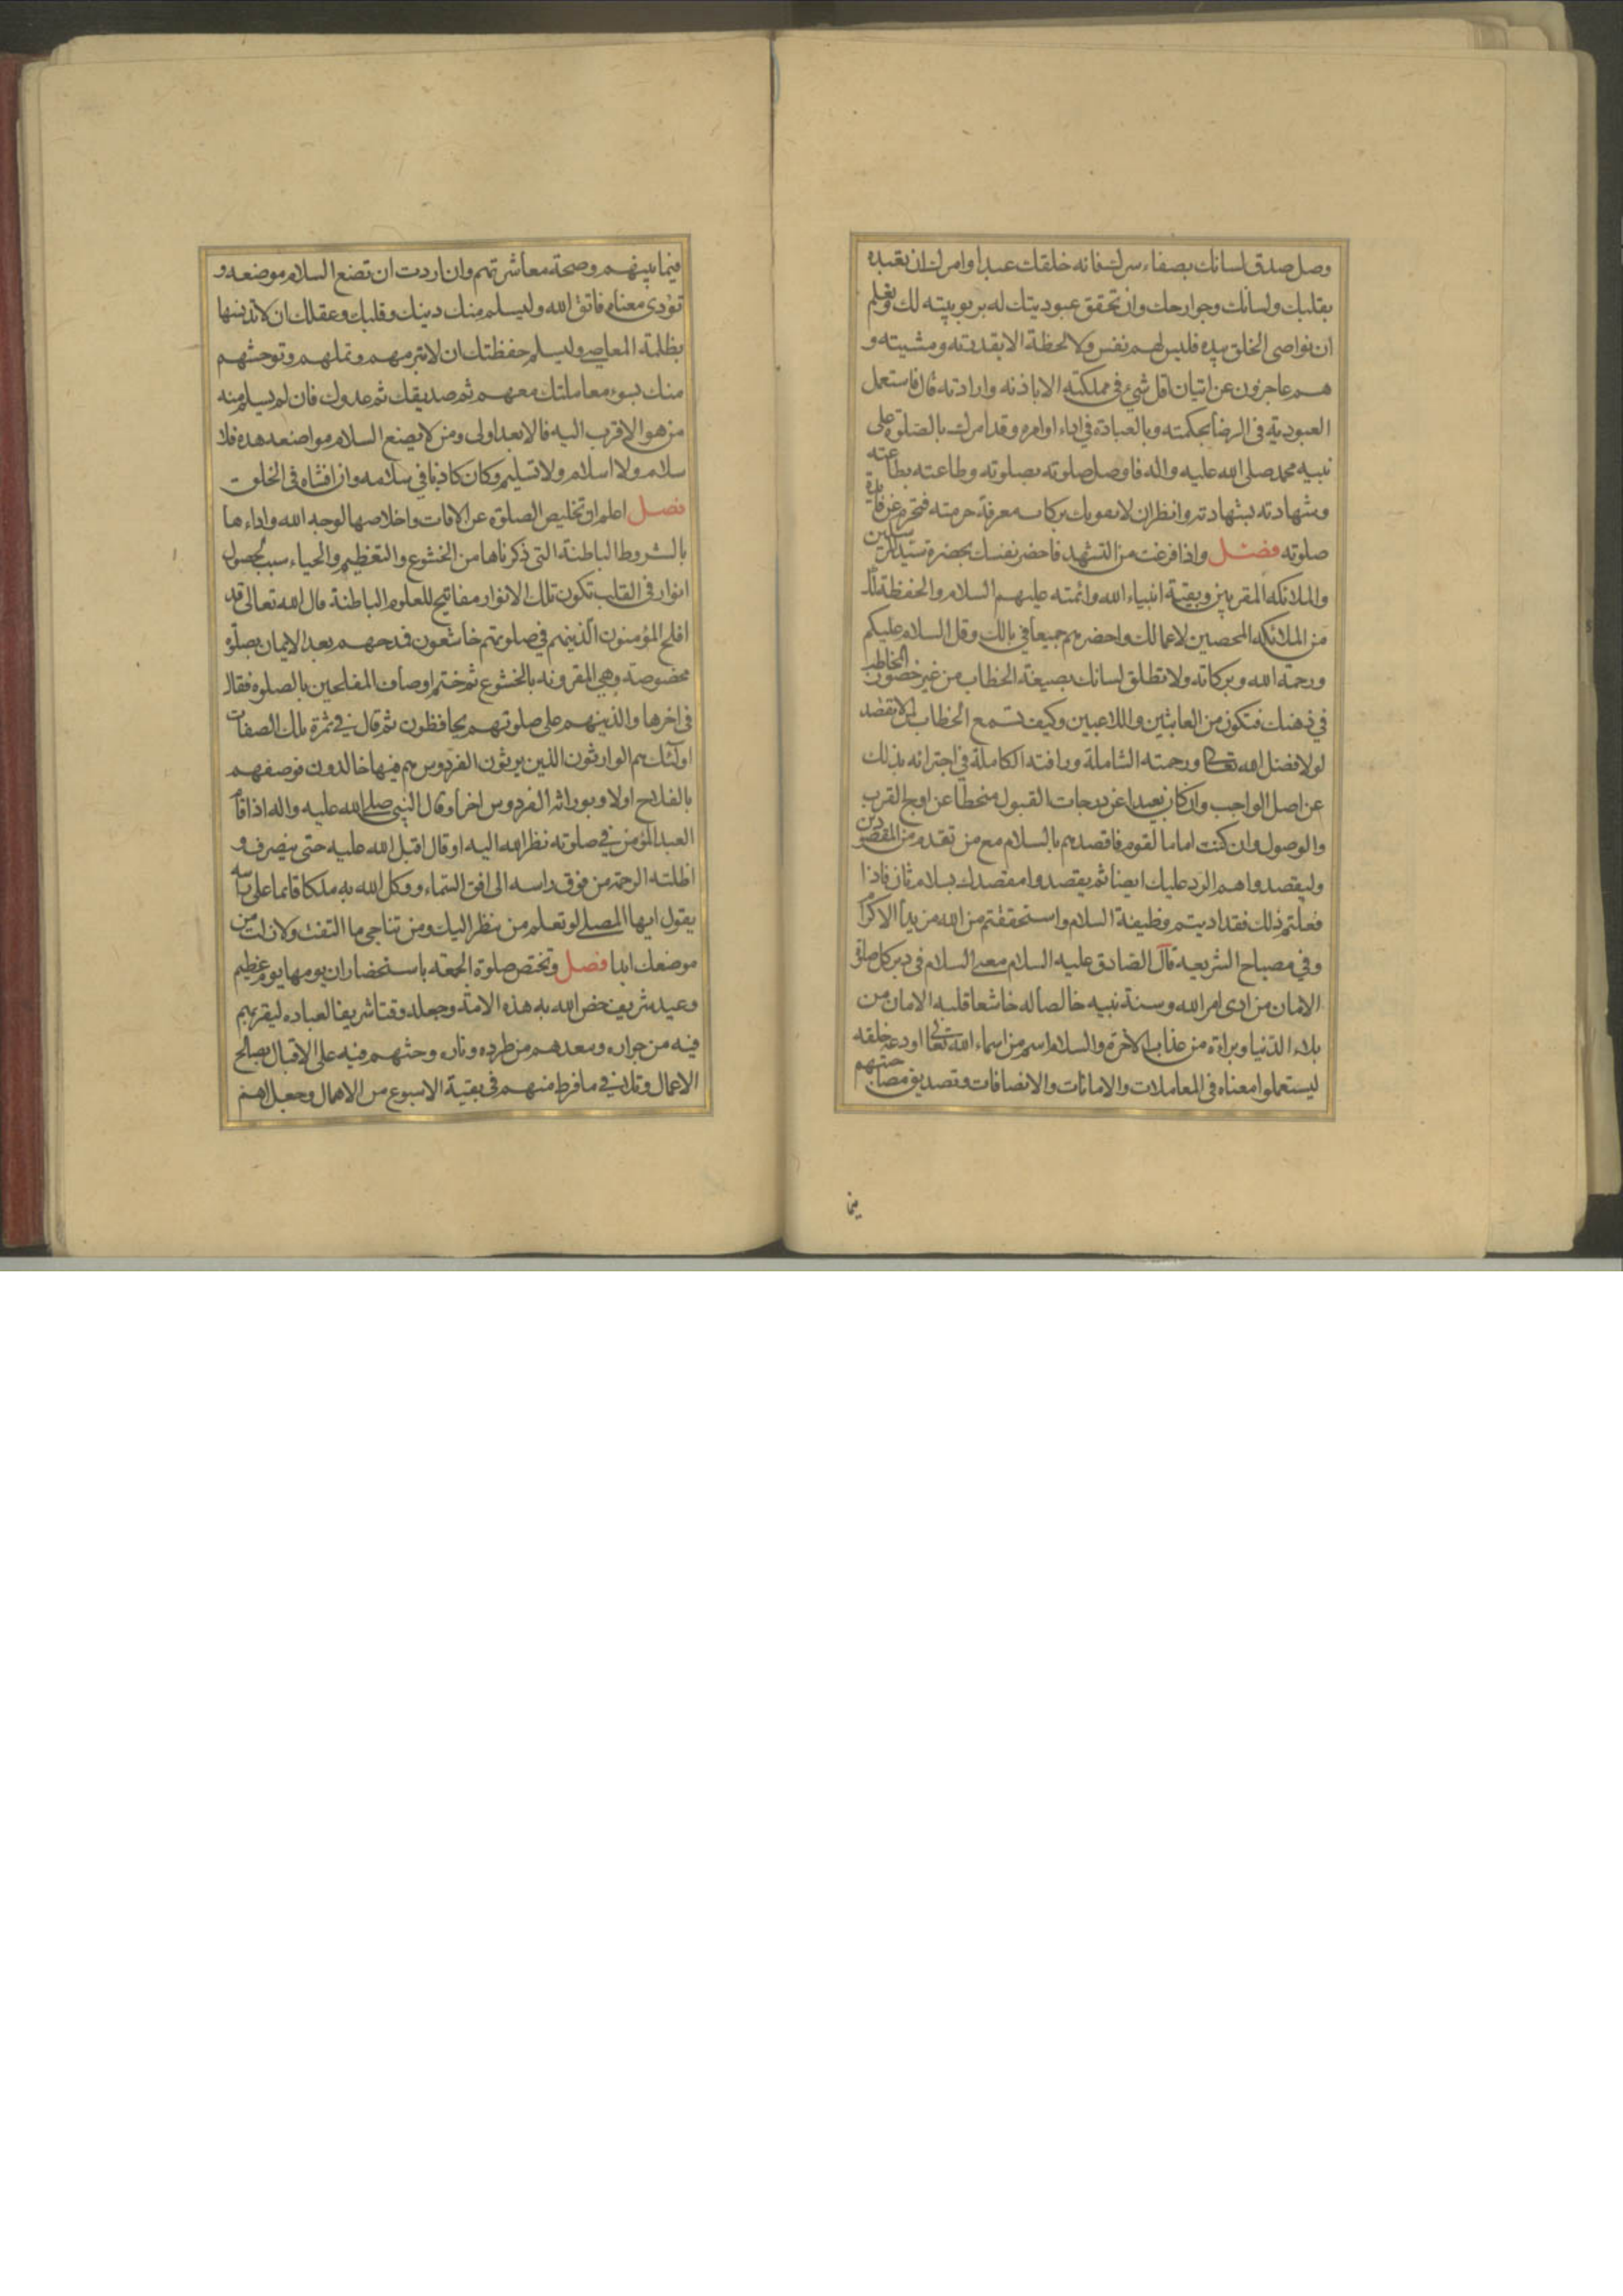 وصل صدق لسانك بصفاء سرك فانه خلقك عبدا وامرك ان تعبده
بقلبك ولسانك وجوارحك وان تحقق عبوديتك له بربوبيته لك وتعلم
ان نواصى الخلق بيده فليس لهم نفس ولا لحظة الا بقدرته ومشيته و
هم عاجزون عن اتيان اقل شئ فى مملكته الا باذنه وارادته قال فاستعمل
العبودية فى الرضا بحكمته وبالعبادة فى اداء اوامره وقد امرك بالصلوة على
نبيه محمد صلى الله عليه واله فاوصل صلوته بصلوته وطاعته بطاعته
وشهادته بشهادته وانظر ان لا يفوتك بركات معرفة حرمته فتحرم عن فائدة
صلوته فصل واذا فرغت من التشهد فاحضر نفسك بحضرة سيد المرسلين
والملائكه المقربين وبقية انبياء الله وائمته عليهم السلام والحفظة لك
من الملائكه المحصين لاعمالك واحضرهم جميعا فى بالك وقل السلام عليكم
ورحمة الله وبركاته ولا تطلق لسانك بصيغة الخطاب من غير حضور المخاطب
فى ذهنك فتكون من العابثين واللاعبين وكيف تسمع الخطاب لمن لا يقصد
لولا فضل الله تعالى ورحمته الشاملة ورافته الكاملة فى اجتزائه بذلك
عن اصل الواجب وان كان بعيدا عن درجات القبول منحطا عن اوج القرب
والوصول وان كنت اماما لقوم فاقصدهم بالسلام مع من تقدم من المقصودين
وليقصدوا هم الرد عليك ايضا ثم يقصدوا مقصدك بسلام ثان فاذا
فعلتم ذلك فقد اديتم وظيفة السلام واستحققتم من الله مزيد الاكرام
وفى مصباح الشريعه قال الصادق عليه السلام معنى السلام فى دبر كل صلوة
الامان من ادى امر الله وسنة نبيه خالصا له خاشعا قلبه الامان من
بلاء الدنيا وبراءة من عذاب الآخرة والسلام اسم من اسماء الله تعالى اودعه خلقه
ليستعملوا معناه فى المعاملات والامانات والانصافات وتصديق مصاحبتهم
فيما
فيما بينهم وصحة معاشرتهم وان اردت ان تضع السلام موضعه و
تؤدى معناه فاتق الله وليسلم منك دينك وقلبك وعقلك ان لا تدنسها
بظلمة المعاصى وليسلم حفظتك ان لا تبرمهم وتملهم وتوحشهم
منك بسوء معاملتك معهم ثم صديقك ثم عدوك فان لم يسلم منه
من هو الاقرب اليه فالابعد اولى ومن لا يضع السلام مواضعه هذه فلا
سلام ولا اسلام ولا تسليم وكان كاذبا فى سلامه وان افشاه فى الخلق
فصل اعلم ان تخليص الصلوة عن الافات واخلاصها لوجه الله واداءها
بالشروط الباطنة التى ذكرناها من الخشوع والتعظيم والحياء سبب لحصول
انوار فى القلب تكون تلك الانوار مفاتيح للعلوم الباطنة قال الله تعالى قد
افلح المؤمنون الذينهم فى صلوتهم خاشعون فمدحهم بعد الايمان بصلوة
مخصوصة وهى المقرونه بالخشوع ثم ختم اوصاف المفلحين بالصلوة فقال
فى اخرها والذينهم على صلوتهم يحافظون ثم قال فى ثمرة تلك الصفات
اولئك هم الوارثون الذين يرثون الفردوس هم فيها خالدون فوصفهم
بالفلاح اولا وبوراثة الفردوس اخرا وقال النبى صلى الله عليه واله اذا قام
العبد المؤمن فى صلوته نظر الله اليه او قال اقبل الله عليه حتى ينصرف و
اظلته الرحمة من فوق راسه الى افق السماء ووكل الله به ملكا قائما على راسه
يقول ايها المصلى لو تعلم من ينظر اليك ومن تناجى ما التفت ولا زلت من
موضعك ابدا فصل وتختص صلوة الجمعة باستحضار ان يومها يوم عظيم
وعيد شريف خص الله به هذه الامة وجعله وقتا شريفا لعباده ليقربهم
فيه من جواره وبعدهم من طرده وناره وحثهم فيه على الاقبال بصالح
الاعمال وتلافى ما فرط منهم فى بقية الاسبوع من الاهمال وجعل اهم